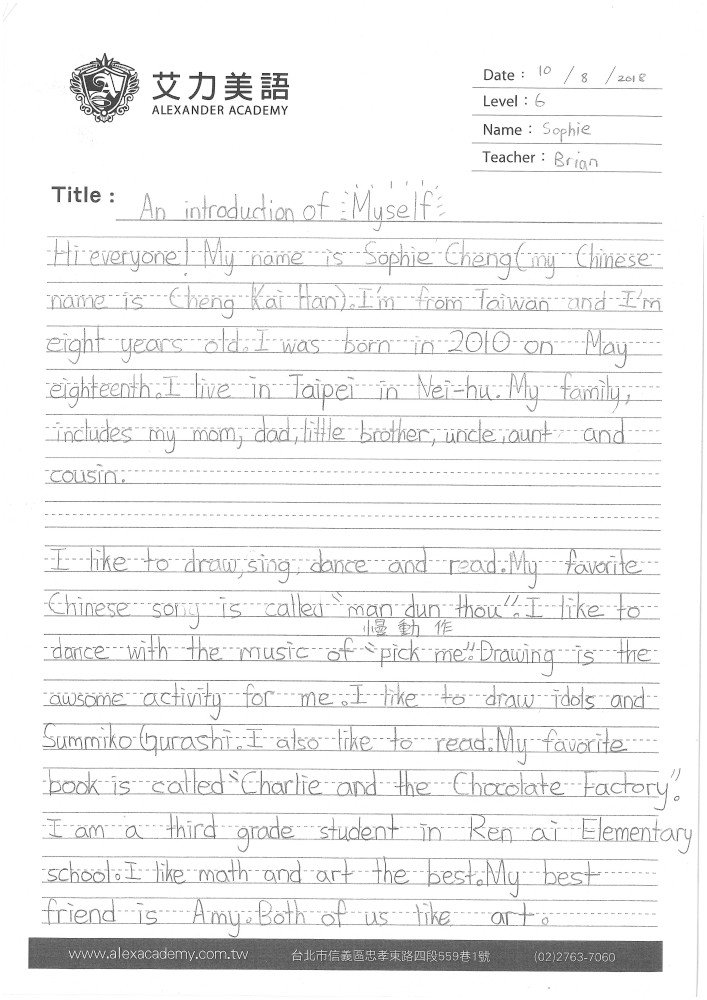 艾力美語
ALEXANDER ACADEMY
Date : 10 / 8 / 2018
Level : 6
Name : Sophie
Teacher : Brian
Title : An introduction of Myself
Hi everyone! My name is Sophie Cheng(my Chinese
name is Cheng Kai Han). I'm from Taiwan and I'm
eight years old. I was born in 2010 on May
eighteenth. I live in Taipei in Nei-hu. My family,
includes my mom, dad, little brother, uncle, aunt and
cousin.
I like to draw, sing, dance and read. My favorite
Chinese song is called "man dun thou". I like to
慢動作
dance with the music of "pick me". Drawing is the
awsome activity for me. I like to draw idols and
Summiko Gurashi. I also like to read. My favorite
book is called "Charlie and the Chocolate Factory".
I am a third grade student in Ren ai Elementary
school. I like math and art the best. My best
friend is Amy. Both of us like art.
www.alexacademy.com.tw 台北市信義區忠孝東路四段559巷1號 (02)2763-7060